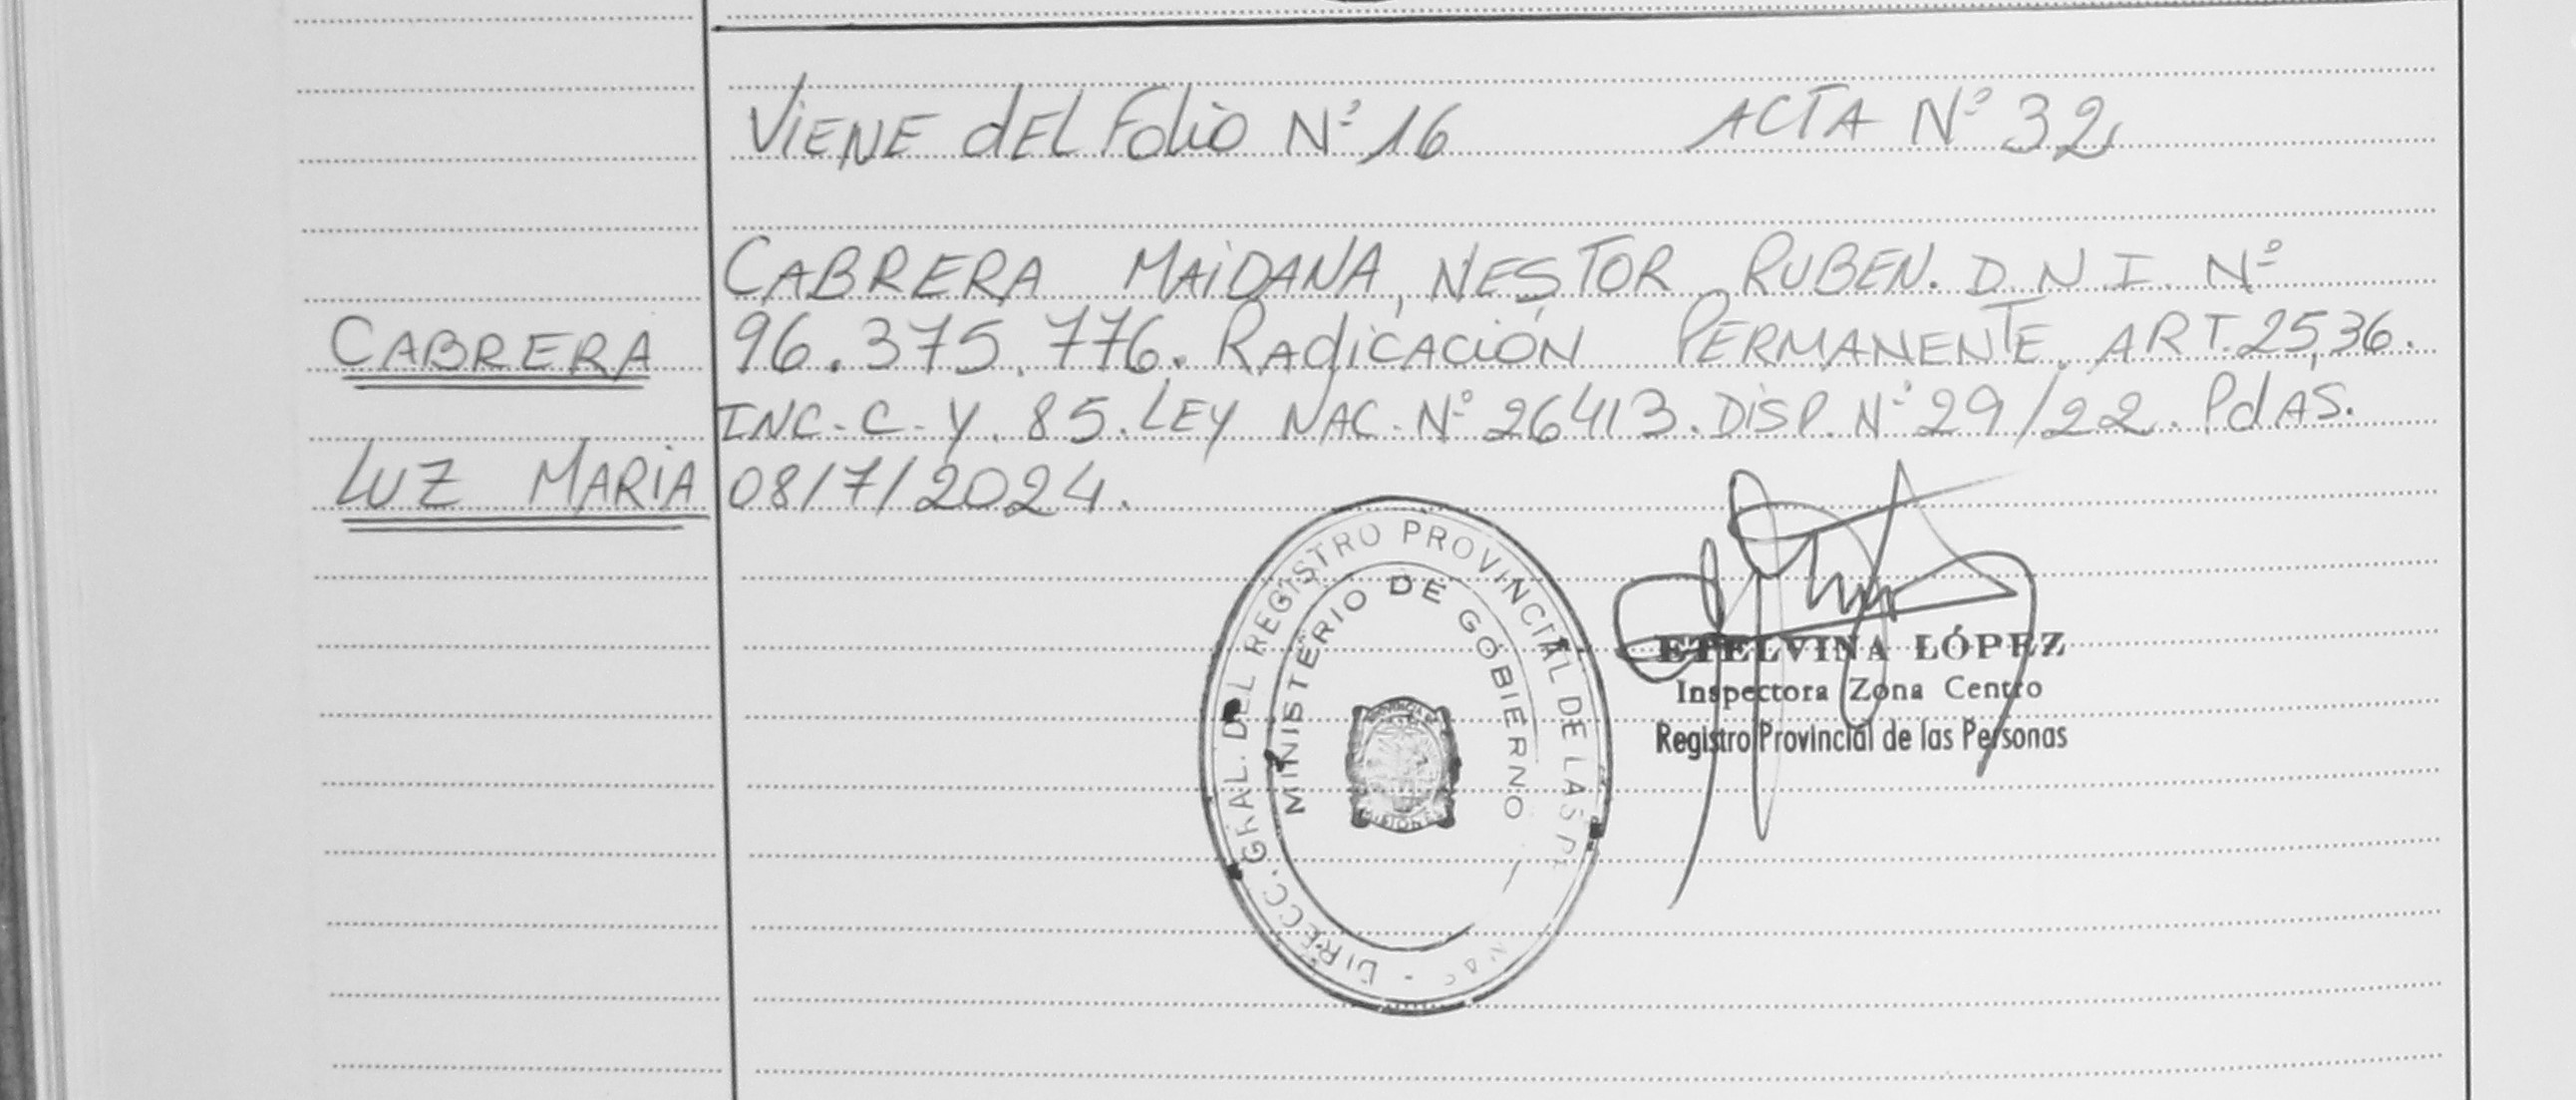 VIENE dEL Folio Nº 16 ACTA Nº 32
CABRERA MAiDANA, NESTOR RUBEN. D.N.I. Nº
CABRERA 96.375.776. RAdiCACiÓN PERMANENTE. ART. 25,36.
INC. C. Y. 85. LEY NAC. Nº 26413. DiSP. Nº 29/22. PdAS.
LUZ MARiA 08/7/2024.
DIRECC. GRAL. DEL REGISTRO PROVINCIAL DE LAS
MINISTERIO DE GOBIERNO
MISIONES
ETELVINA LÓPEZ
Inspectora Zona Centro
Registro Provincial de las Personas